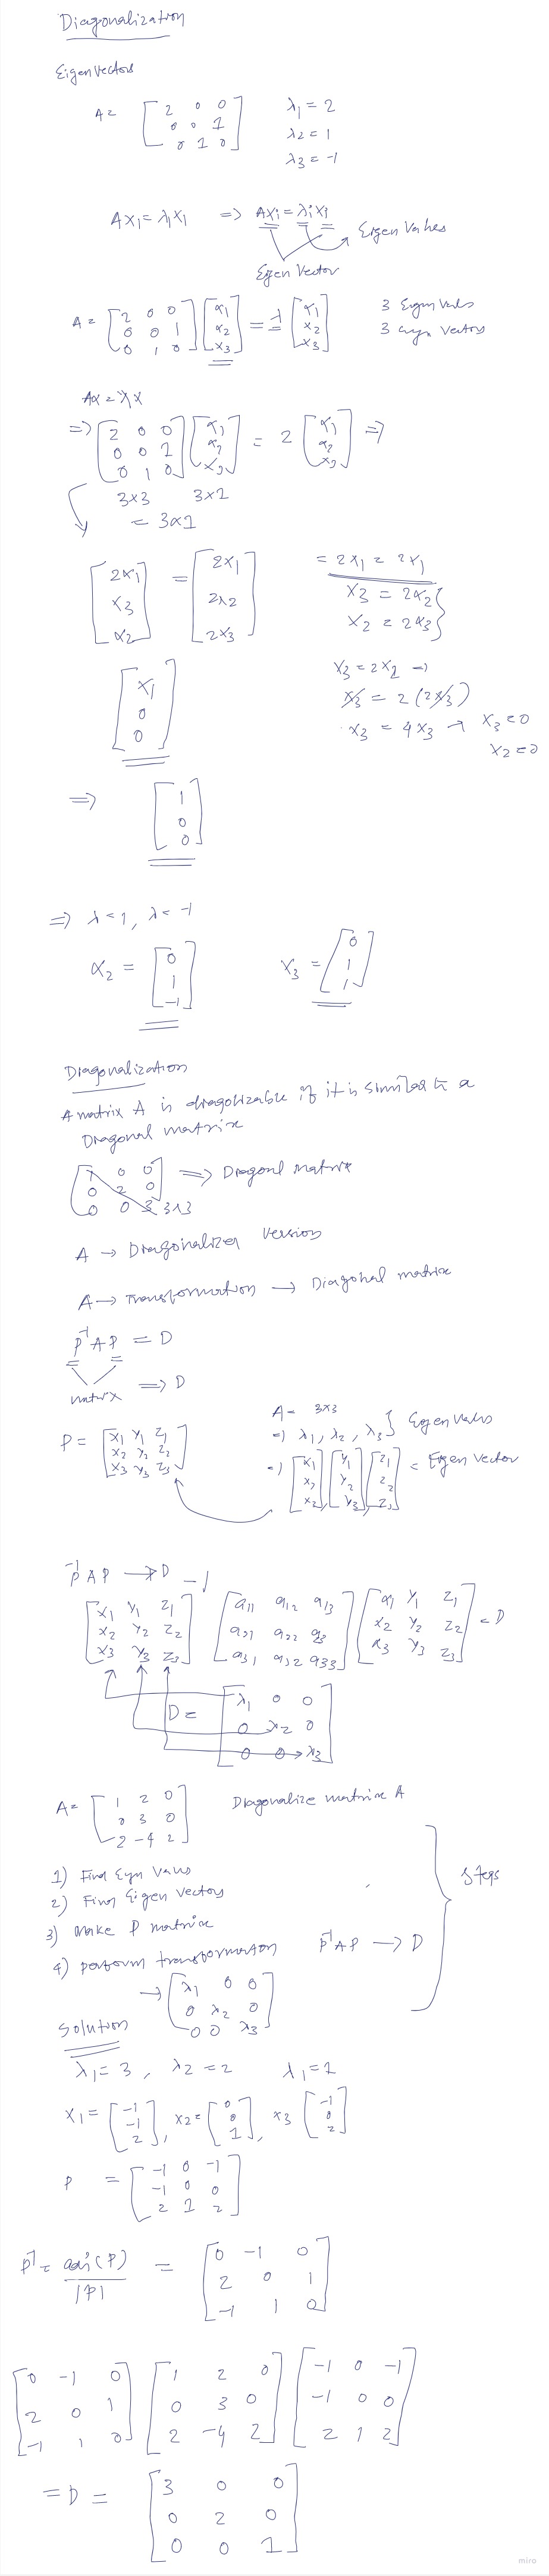 Diagonalization
Eigen Vectors
A = [2 0 0; 0 0 1; 0 1 0] λ1 = 2
λ2 = 1
λ3 = -1
AX1 = λ1X1 => AXi = λiXi
Eigen Values
Eigen Vector
A = [2 0 0; 0 0 1; 0 1 0] [x1; x2; x3] = λ [x1; x2; x3]
3 Eigen Vals
3 eign Vectors
AX = λX
=> [2 0 0; 0 0 1; 0 1 0] [x1; x2; x3] = 2 [x1; x2; x3] =>
3x3 3x1
= 3x1
[2x1; x3; x2] = [2x1; 2x2; 2x3]
= 2x1 = 2x1
x3 = 2x2
x2 = 2x3
[x1; 0; 0]
x3 = 2x2 =>
x3 = 2(2x3)
x3 = 4x3 → x3 = 0
x2 = 0
=> [1; 0; 0]
=> λ = 1, λ = -1
x2 = [0; 1; -1] x3 = [0; 1; 1]
Diagonalization
A matrix A is diagolizable if it is similar to a
Diagonal matrix
[1 0 0; 0 2 0; 0 0 3] 3x3 => Diagonl matrix
A → Diagonalized version
A → Transformation → Diagonal matrix
P^-1 A P = D
matrix => D
P = [x1 y1 z1; x2 y2 z2; x3 y3 z3]
A = 3x3
=> λ1, λ2, λ3 } Eigen values
=> [x1; x2; x2], [y1; y2; y3], [z1; z2; z3] = Eigen Vector
P^-1 A P → D
[x1 y1 z1; x2 y2 z2; x3 y3 z3]^-1 [a11 a12 a13; a21 a22 a3; a31 a32 a33] [x1 y1 z1; x2 y2 z2; x3 y3 z3] = D
D = [λ1 0 0; 0 λ2 0; 0 0 λ3]
A = [1 2 0; 0 3 0; 2 -4 2] Diagonalize matrix A
1) Find Eign Values
2) Find Eigen Vectors
3) Make P matrix
4) perform transformation P^-1 A P → D
Steps
→ [λ1 0 0; 0 λ2 0; 0 0 λ3]
Solution
λ1 = 3, λ2 = 2 λ1 = 1
x1 = [-1; -1; 2], x2 = [0; 0; 1], x3 [-1; 0; 2]
P = [-1 0 -1; -1 0 0; 2 1 2]
P^-1 = adj(P) / |P| = [0 -1 0; 2 0 1; -1 1 0]
[0 -1 0; 2 0 1; -1 1 0] [1 2 0; 0 3 0; 2 -4 2] [-1 0 -1; -1 0 0; 2 1 2]
= D = [3 0 0; 0 2 0; 0 0 1]
miro